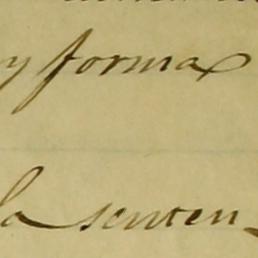 y forma
la senten